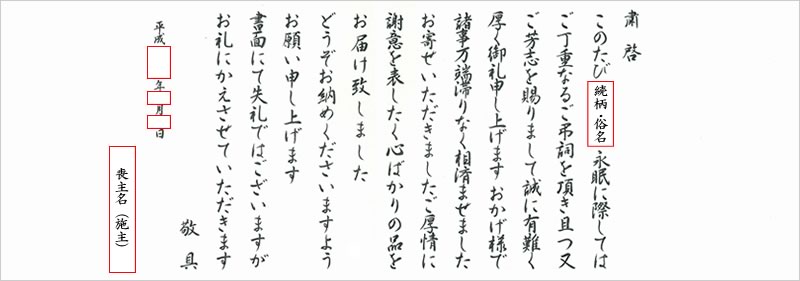 粛啓
このたび 続柄・俗名 永眠に際しては
ご丁重なるご弔詞を頂き且つ又
ご芳志を賜りまして誠に有難く
厚く御礼申し上げます おかげ様で
諸事万端滞りなく相済ませました
お寄せいただきましたご厚情に
謝意を表したく心ばかりの品を
お届け致しました
どうぞお納めくださいますよう
お願い申し上げます
書面にて失礼ではございますが
お礼にかえさせていただきます
敬具
平成 年 月 日
喪主名(施主)